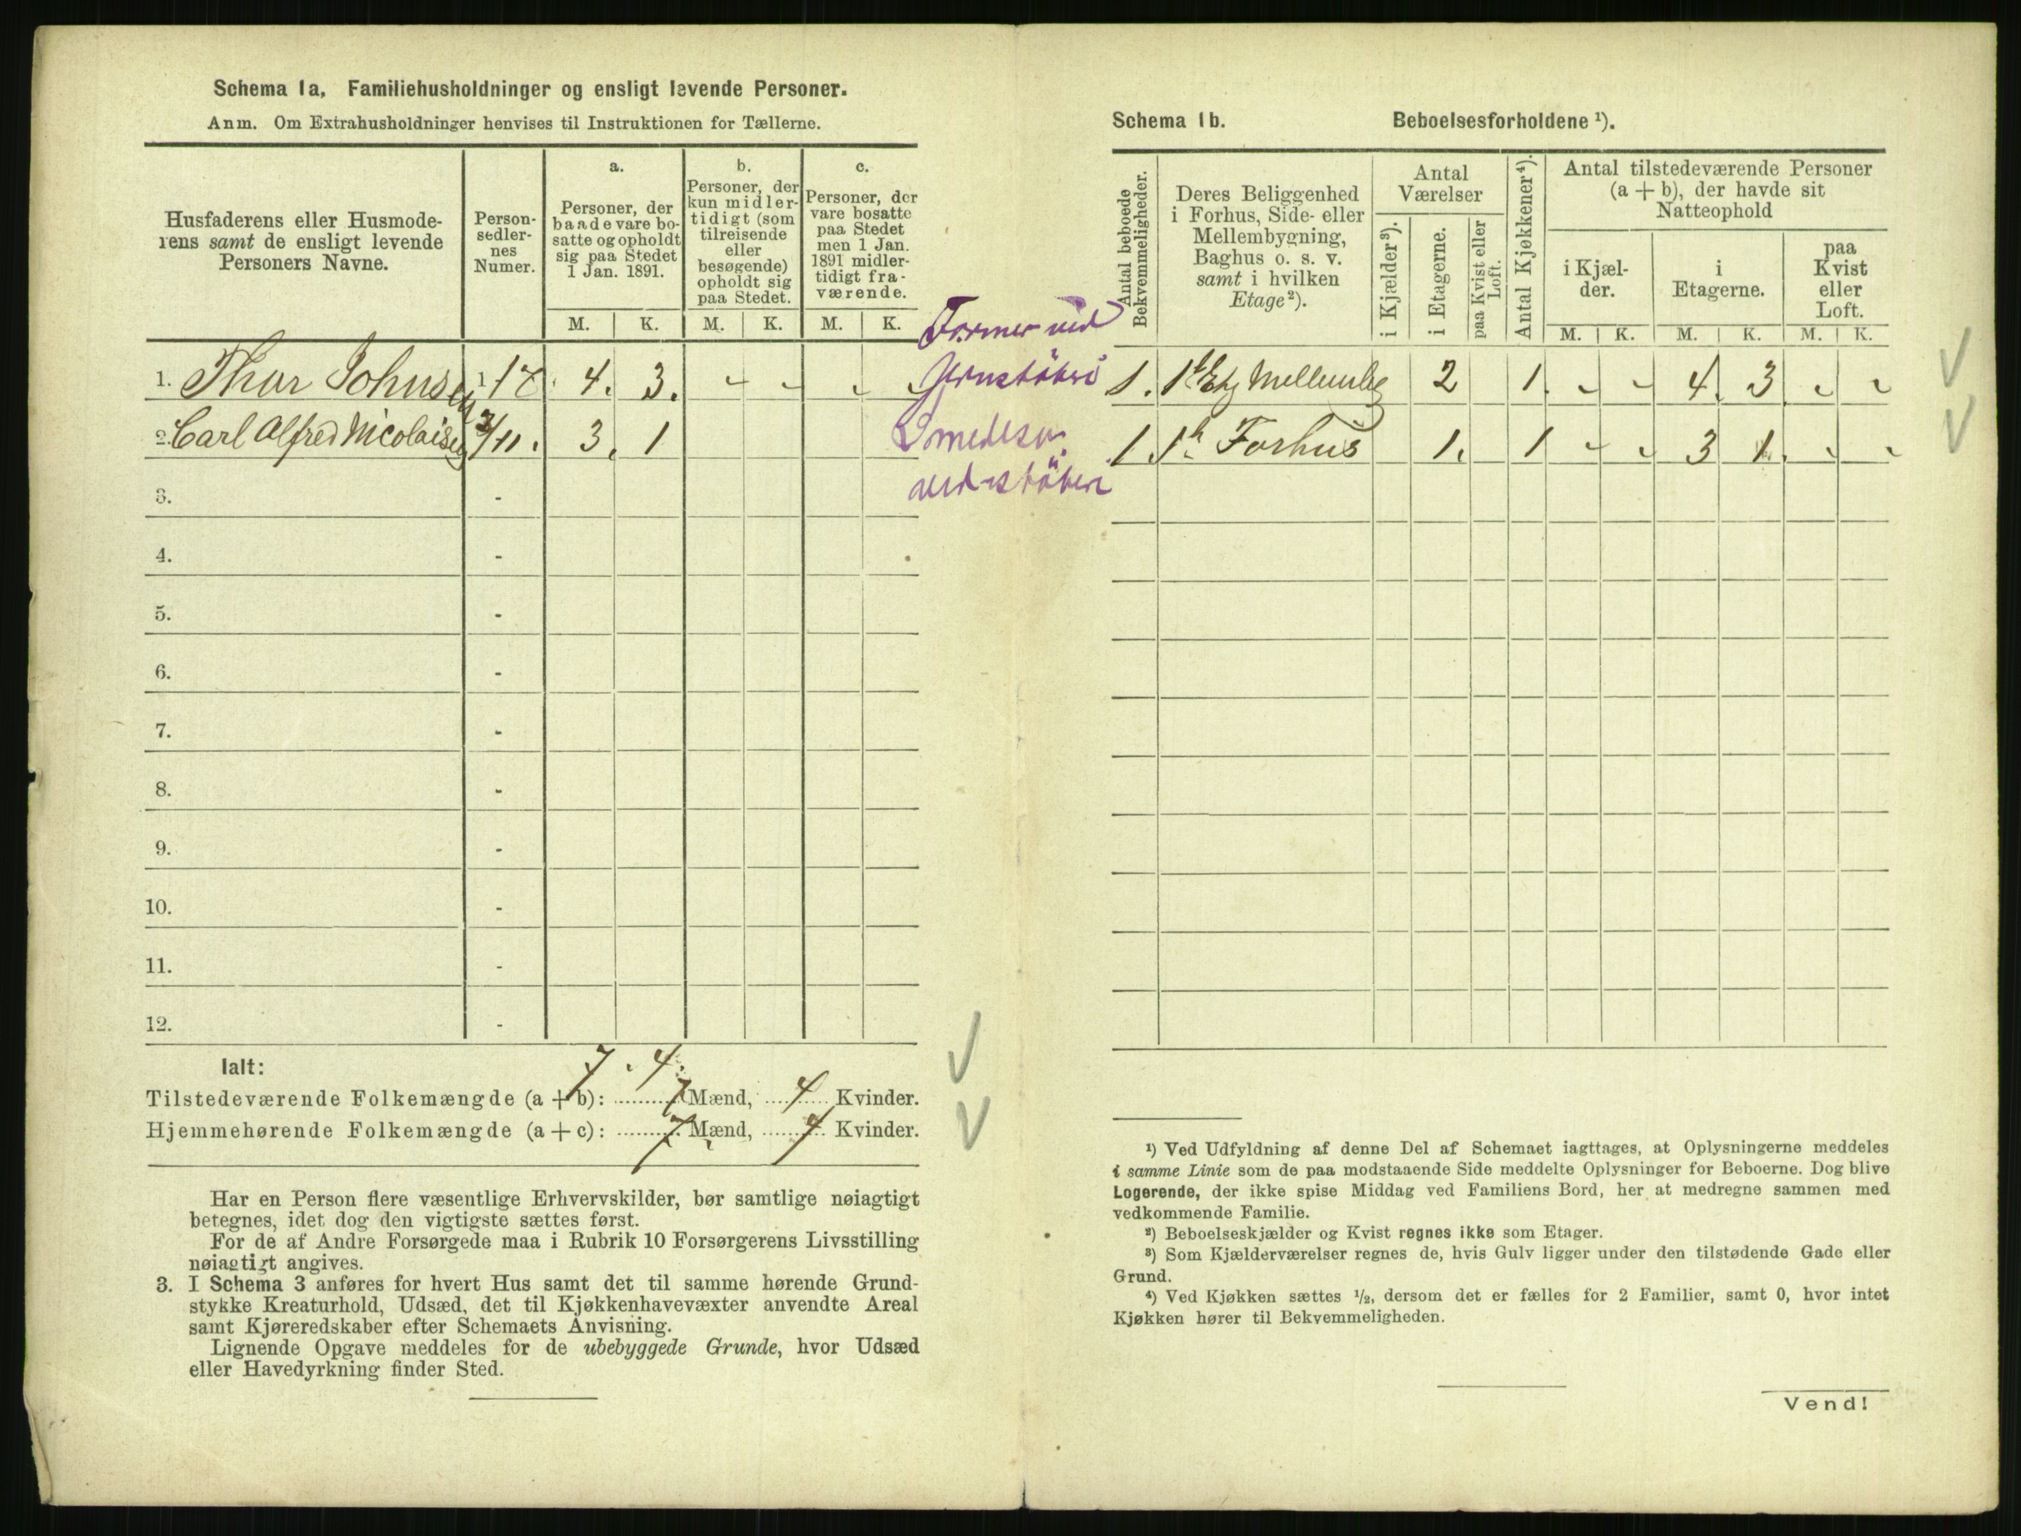 Schema 1a. Familiehusholdninger og ensligt levende Personer.
Anm. Om Extrahusholdninger henvises til Instruktionen for Tællerne.
Husfaderens eller Husmode-
rens samt de ensligt levende
Personers Navne.
Person-
sedler-
nes
Numer.
a.
Personer, der
baade vare bo-
satte og opholdt
sig paa Stedet
1 Jan. 1891.
b.
Personer, der
kun midler-
tidigt (som
tilreisende
eller
besøgende)
opholdt sig
paa Stedet.
c.
Personer, der
vare bosatte
paa Stedet
men 1 Jan.
1891 midler-
tidigt fra-
værende.
M. K. M. K. M. K.
1. Thor Johnsen 1-7. 4. 3. - - - -
2. Carl Alfred Nicolaisen /11. 3. 1
3. -
4. -
5. -
6. -
7. -
8. -
9. -
10. -
11. -
12. -
Ialt: 7. 4.
Tilstedeværende Folkemængde (a + b): 7 Mænd, 4 Kvinder.
Hjemmehørende Folkemængde (a + c): 7 Mænd, 4 Kvinder.
Har en Person flere væsentlige Erhvervskilder, bør samtlige nøiagtigt
betegnes, idet dog den vigtigste sættes først.
For de af Andre Forsørgede maa i Rubrik 10 Forsørgerens Livsstilling
nøiagtigt angives.
3. I Schema 3 anføres for hvert Hus samt det til samme hørende Grund-
stykke Kreaturhold, Udsæd, det til Kjøkkenhavevæxter anvendte Areal
samt Kjøreredskaber efter Schemaets Anvisning.
Lignende Opgave meddeles for de ubebyggede Grunde, hvor Udsæd
eller Havedyrkning finder Sted.
Former ved
Jernstöberi
Smedesv.
ved -stöberi
Schema 1b. Beboelsesforholdene ¹).
Antal beboede
Bekvemmeligheder.
Deres Beliggenhed
i Forhus, Side- eller
Mellembygning,
Baghus o. s. v.
samt i hvilken
Etage²).
Antal
Værelser
i Kjælder³).
i Etagerne.
paa Kvist eller
Loft.
Antal Kjøkkener⁴).
Antal tilstedeværende Personer
(a + b), der havde sit
Natteophold
i Kjæl-
der.
i
Etagerne.
paa
Kvist
eller
Loft.
M. K. M. K. M. K.
1. 1ste Etg Mellembg 2 1. - - 4. 3. - -
1. 1ste Forhus 1. 1 - - 3 1. - -
¹) Ved Udfyldning af denne Del af Schemaet iagttages, at Oplysningerne meddeles
i samme Linie som de paa modstaaende Side meddelte Oplysninger for Beboerne. Dog blive
Logerende, der ikke spise Middag ved Familiens Bord, her at medregne sammen med
vedkommende Familie.
²) Beboelseskjælder og Kvist regnes ikke som Etager.
³) Som Kjælderværelser regnes de, hvis Gulv ligger under den tilstødende Gade eller
Grund.
⁴) Ved Kjøkken sættes ½, dersom det er fælles for 2 Familier, samt 0, hvor intet
Kjøkken hører til Bekvemmeligheden.
Vend!